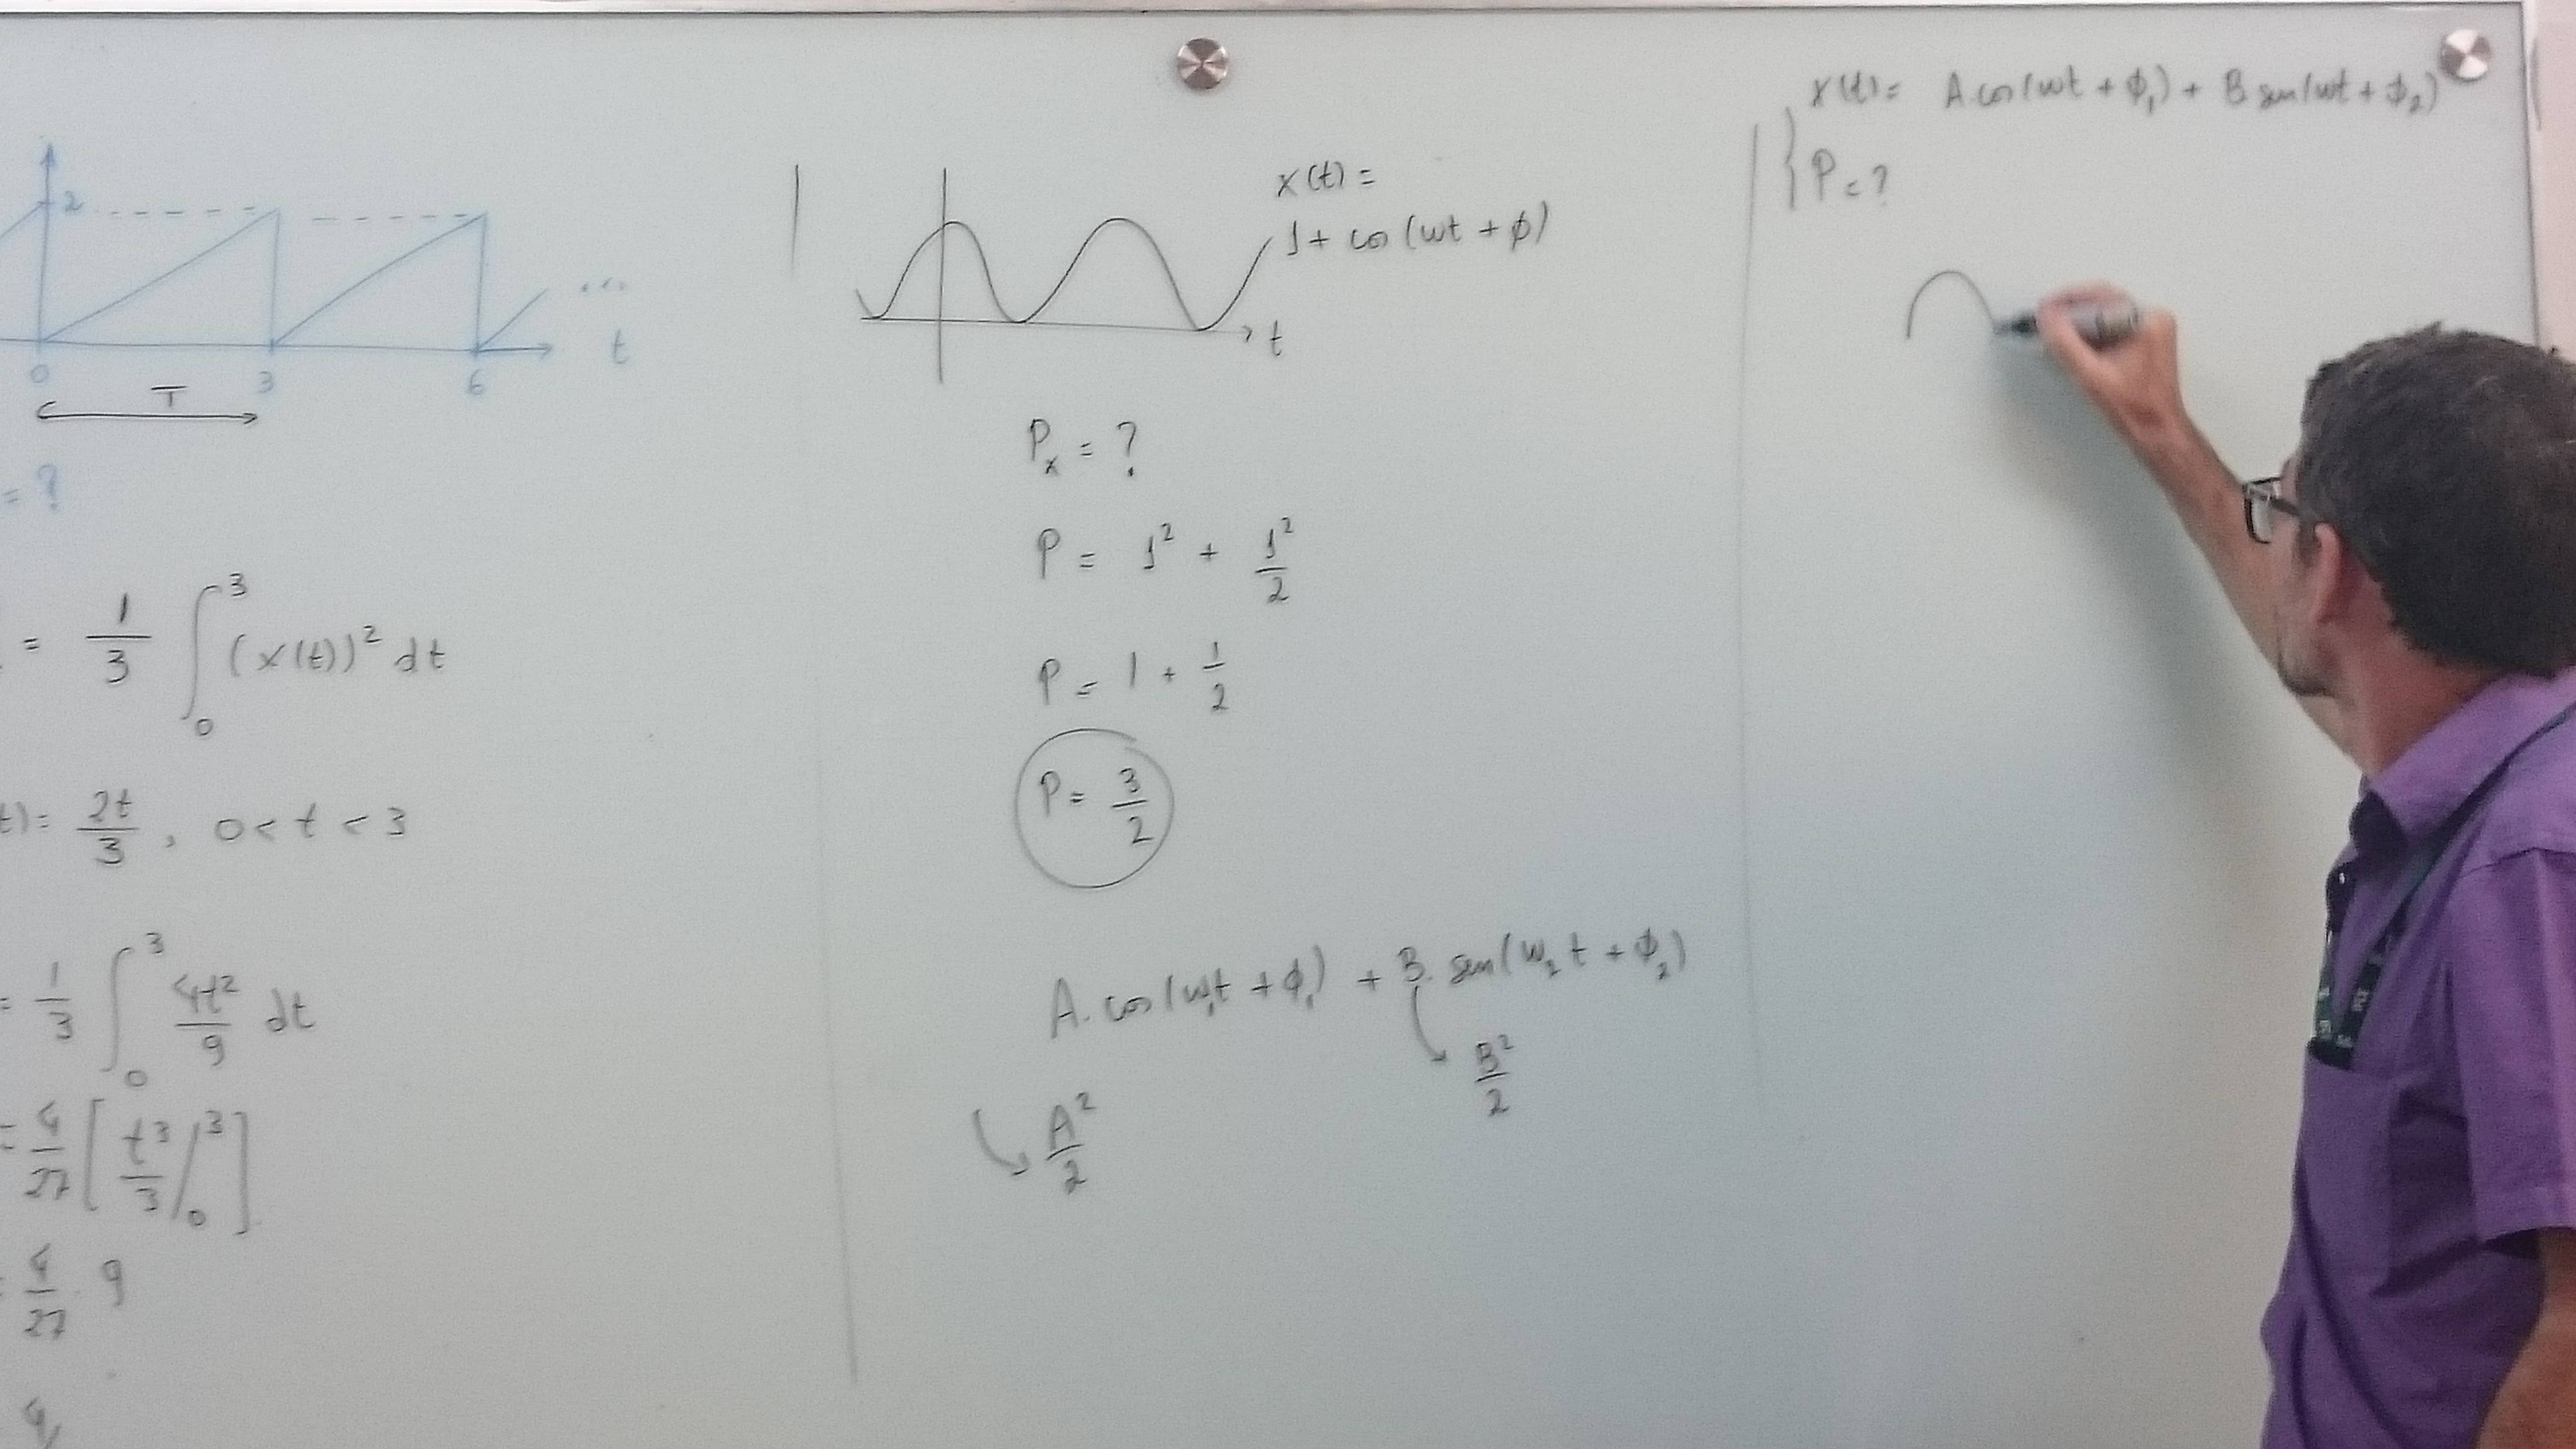 2
...
t
0 3 6
T
= ?
= 1/3 ∫₀³ (x(t))² dt
t) = 2t/3 , 0 < t < 3
= 1/3 ∫₀³ 4t²/9 dt
= 4/27 [ t³/3 /₀³ ]
= 4/27 . 9
4/
x(t) =
1 + cos (wt + ϕ)
t
Pₓ = ?
P = 1² + 1²/2
P = 1 + 1/2
P = 3/2
A . cos (w₁t + ϕ₁) + B . sen (w₂t + ϕ₂)
B²/2
A²/2
x(t) = A cos (wt + ϕ₁) + B sen (wt + ϕ₂)
P = ?